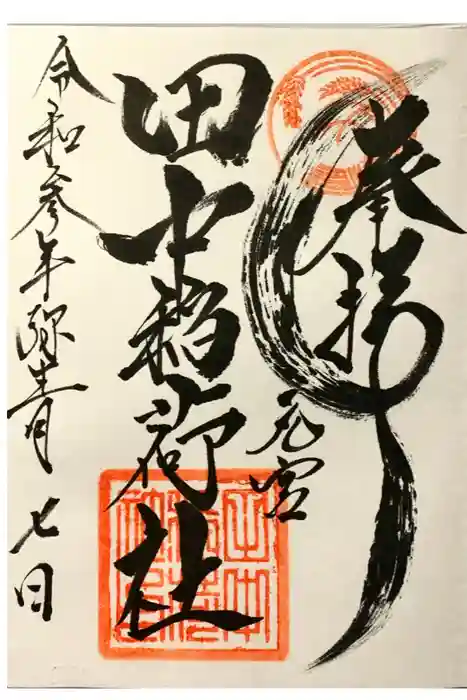 奉拝
元宮
田中稲荷社
令和参年弥生月七日